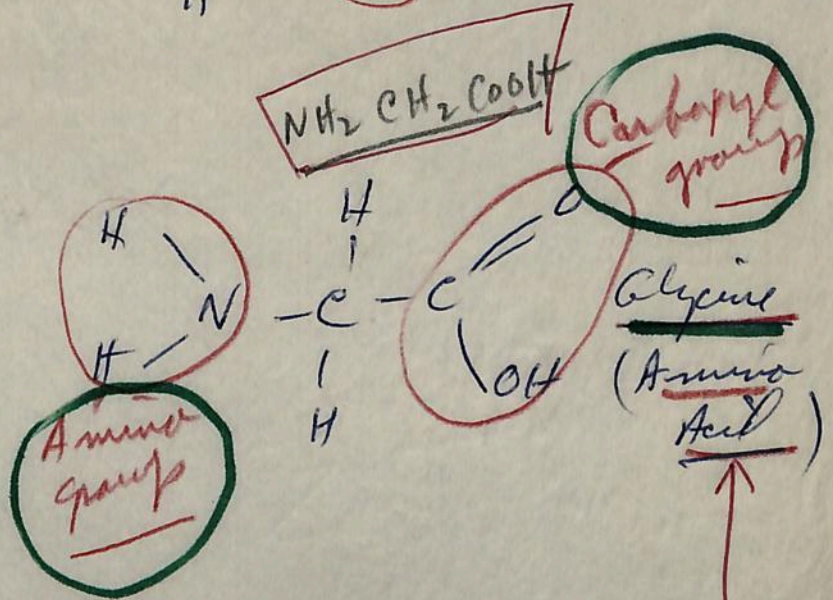 H
NH₂ CH₂ COOH
Carboxyl
group
H H O
N - C - C
Glycine
H OH (Amino
H Acid)
Amino
group